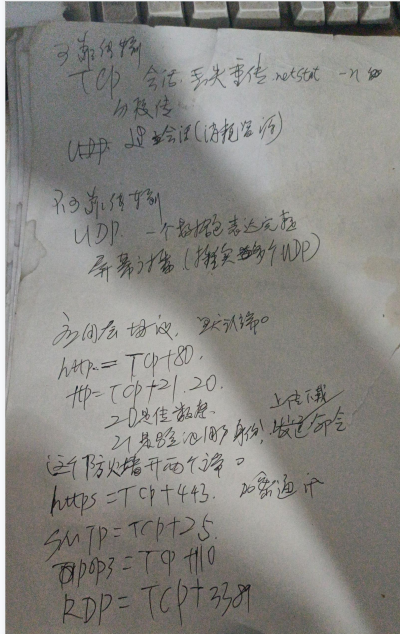 可靠传输
TCP 会话 丢失重传 netstat -n
分段传
UDP 建立会话(消耗资源)
不可靠传输
UDP. 一个数据包表达完整
屏幕广播 (多个UDP)
应用层协议, 默认端口
http = TCP+80.
ftp = TCP+21 .20.
20是传数据.
上传下载
21是验证用户身份, 发送命令
这个防火墙开两个端口
https = TCP+443.
SMTP = TCP+25.
pop3 = TCP+110
RDP = TCP+3389